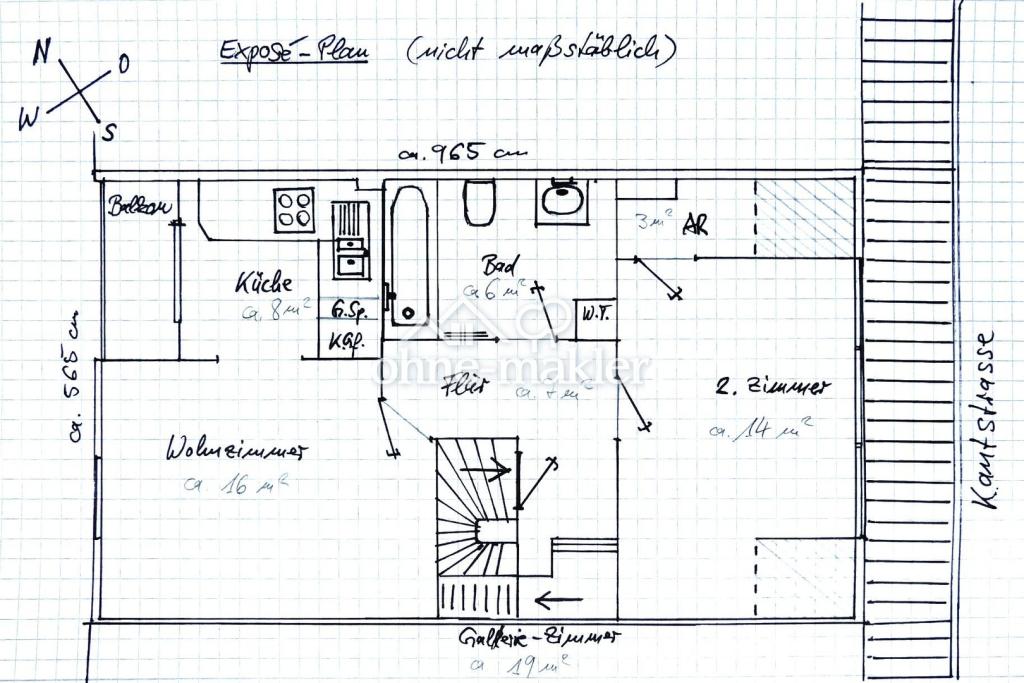 Exposé-Plan (nicht maßstäblich)
N
O
W
S
ca. 965 cm
Balkon
3 m² AR
Bad
ca 6 m²
Küche
ca. 8 m²
G.Sp.
W.T.
KGf.
ca. 565 cm
ohne-makler
Flur
ca. 7 m²
2. Zimmer
ca. 14 m²
Kantstrasse
Wohnzimmer
ca. 16 m²
Gallerie-Zimmer
ca 19 m²